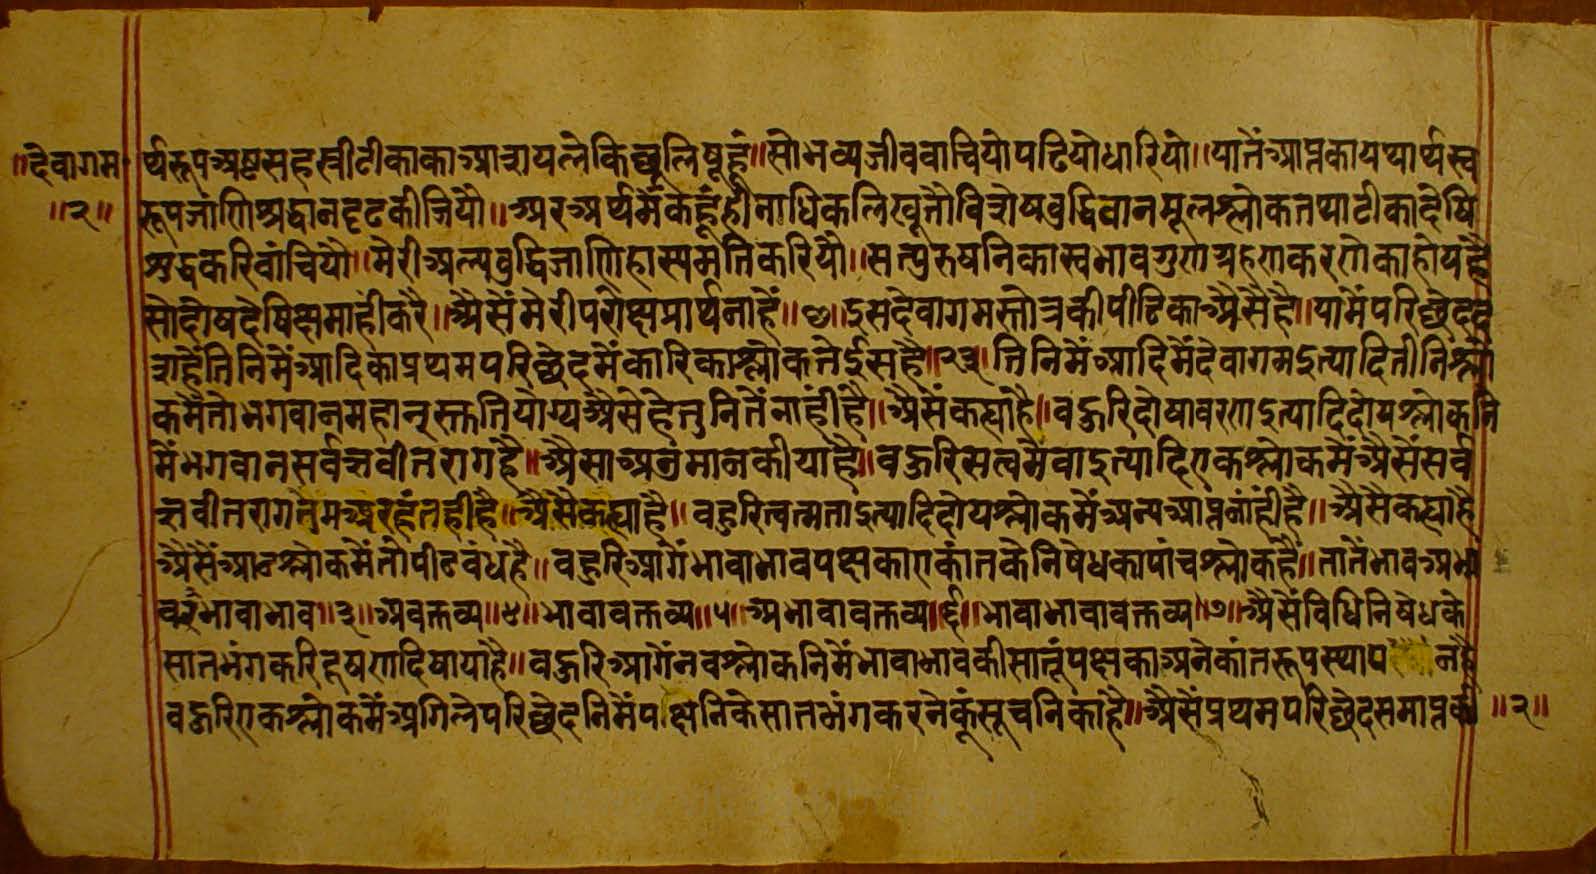 ॥देवागम
॥२॥
र्थरूपअष्टसहस्त्रीटीकाकाआशयलेकिछूलिषूहूं॥सोभव्यजीववाचियोपढियोधारियो॥यातेंआप्तकायथार्थस्व
रूपजांणिश्रद्धानदृढकीजियौ॥अरअर्थमैंकहूंहीनाधिकलिखूतौविशेषबुद्धिवानमूलश्लोकतथाटीकादेषि
शुद्धकरिवांचियौ॥मेरीअल्पबुद्धिजाणिहास्यमतिकरियौ॥सत्पुरुषनिकास्वभावगुणग्रहणकरणेकाहोयहै
सोदोषदेषिक्षमाहीकरै॥अैसेंमेरीपरोक्षप्रार्थनाहै॥छ॥इसदेवागमस्तोत्रकीपीठिकाअैसैहै॥यामेंपरिछेदद
शहैंतिनिमेंआदिकाप्रथमपरिछेदमेंकारिकाश्लोकतेईसहै॥२३॥तिनिमेंआदिमेंदेवागमइत्यादितीनिश्लो
कमैंतोभगवानमहान्स्तुतियोग्यअैसेहेतुनितेंनांहींहै॥अैसेंकह्याहै॥वहुरिदोषावरणइत्यादिदोयश्लोकनि
मेंभगवानसर्वज्ञवीतरागहै॥अैसाअनुमानकीयाहै॥वहुरिसत्वमेवाइत्यादिएकश्लोकमेंअैसेंसर्व
ज्ञवीतरागतुमअरहंतहीहै॥अैसैकह्याहै॥वहुरित्वन्मताइत्यादिदोयश्लोकमेंअन्यआप्तनांहींहै॥अैसैकह्याहै
अैसेंआठश्लोकमेंतौपीठबंधहै॥वहुरिआगेंभावाभावपक्षकाएकांतकेनिषेधकापांचश्लोकहै॥तातेंभावअभा
वरुंभावाभाव॥३॥अवक्तव्य॥४॥भावावक्तव्य॥५॥अभावावक्तव्य॥६॥भावाभावावक्तव्य॥७॥अैसेंविधिनिषेधके
सातभंगकरिदूषणदिषायाहै॥वहुरिआगेंनवश्लोकनिमेंभावाभावकीसातूंपक्षकाअनेकांतरूपस्थापनहै
वहुरिएकश्लोकमेंअगिलेपरिछेदनिमेंपक्षनिकेसातभंगकरनेकूंसूचनिकाहै॥अैसेंप्रथमपरिछेदसमाप्तकी
॥२॥